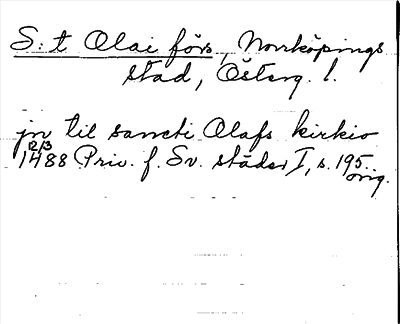 S:t Olai förs, Norrköpings
stad, Österg. l.
jn til sancti Olafs kirkio
12/3
1488 Priv. f. Sv. städer I, s. 195
orig.